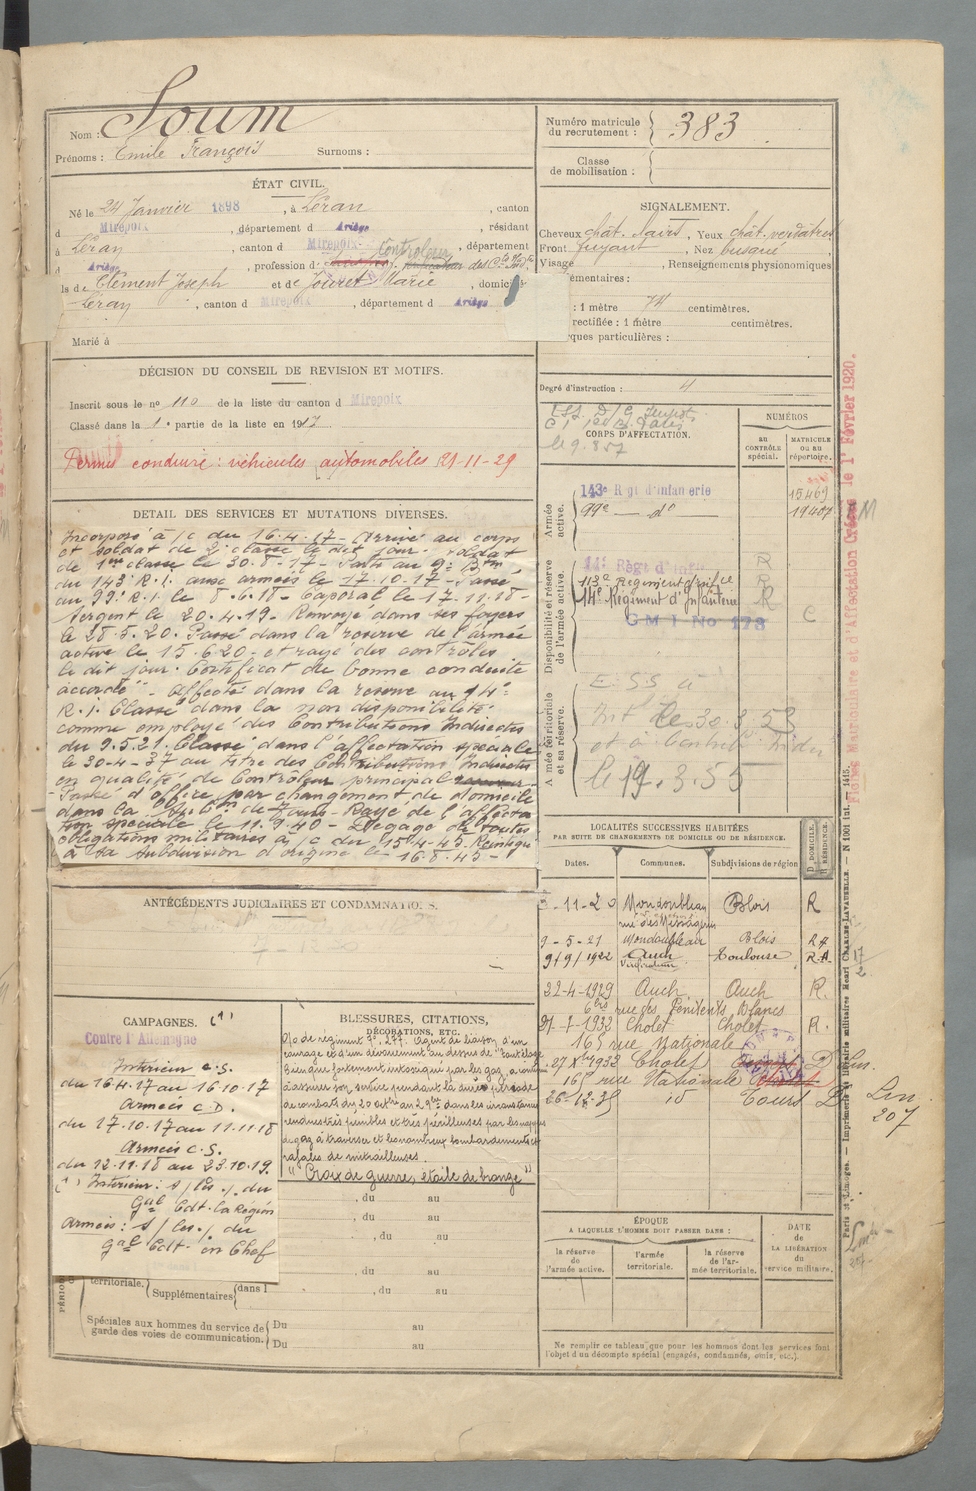 Nom : Soum
Prénoms : Emile François Surnoms :
Numéro matricule du recrutement : 383
Classe de mobilisation :
ÉTAT CIVIL.
Né le 24 Janvier 1898, à Léran, canton
d Mirepoix, département d Ariège, résidant
à Léran, canton d Mirepoix, département
d Ariège, profession d Controleur des
ls de Clément Joseph et de Jouret Marie, domicilié
Léran, canton d Mirepoix, département d Ariège
Marié à
SIGNALEMENT.
Cheveux chât. clairs, Yeux chât. verdâtres
Front fuyant, Nez busqué
Visage , Renseignements physionomiques
émentaires :
: 1 mètre 74 centimètres.
rectifiée : 1 mètre centimètres.
ques particulières :
Degré d'instruction : 4
DÉCISION DU CONSEIL DE RÉVISION ET MOTIFS.
Inscrit sous le nº 110 de la liste du canton d Mirepoix
Classé dans la 1e partie de la liste en 1917
Permis conduire : véhicules automobiles 21-11-29
DÉTAIL DES SERVICES ET MUTATIONS DIVERSES.
Incorporé à /c du 16.4.17 - Arrivé au corps
et soldat de 2e classe le dit jour. Soldat
de 1ère classe le 30.8-17 - Passé au 9e Btn
du 143e R.I. aux armées le 17.10-17 - Passé
au 99e R.I. le 8.6.18 - Caporal le 17.11.18 -
Sergent le 20.4.19 - Renvoyé dans ses foyers
le 28.5.20. Passé dans la réserve de l'armée
active le 15.6.20 - et rayé des contrôles
le dit jour. Certificat de bonne conduite
accordé - Affecté dans la réserve au 14e
R.I. Classé dans la non disponibilité
comme employé des Contributions Indirectes
du 9.5.21. Classé dans l'affectation spéciale
le 30-4-37 au titre des Contributions Indirectes
en qualité de Contrôleur principal
Passé d'office par changement de domicile
dans la Sub. de Tours - Rayé de l'affecta
tion spéciale le 11.9.40 - Dégagé de toutes
obligations militaires à /c du 15.4.45. Réintégré
à sa subdivision d'origine le 16.8.45 -
CORPS D'AFFECTATION.
NUMÉROS
AU CONTRÔLE spécial.
MATRICULE OU AU répertoire.
Armée active.
143e Rgt d'Infanterie 15469
99e — do 19407
Disponibilité et réserve de l'armée active.
14e Régt d'Inf R
113e Régiment d'Inf R
14e Régiment d'Infanterie R
GMI No 173 C
Armée territoriale et sa réserve.
le 19.3.55
Fiches Matriculaire et d'Affectation Créées le 1er Février 1920.
ANTÉCÉDENTS JUDICIAIRES ET CONDAMNATIONS.
LOCALITÉS SUCCESSIVES HABITÉES
PAR SUITE DE CHANGEMENTS DE DOMICILE OU DE RÉSIDENCE.
Dates. Communes. Subdivisions de région
D. DOMICILE. R. RÉSIDENCE.
-11-20 Mondoubleau Blois R
rue des Messageries
9-5-21 Mondoubleau Blois R A
9/9/1922 Auch Toulouse R.A.
22-4-1929 Auch Auch R.
6bis rue des Pénitents Blancs
21-7-1932 Cholet Cholet R.
165 rue Nationale
27 Xbre 1933 Cholet D
165 rue Nationale
26-12-35 id Tours D
Lin
207
CAMPAGNES. (1)
Contre l'Allemagne
Intérieur C.S.
du 16.4.17 au 16.10.17
Armées C.D.
du 17.10.17 au 11.11.18
Armées C.S.
du 12.11.18 au 23.10.19.
(1) Intérieur : s/ les /. du
Gal Cdt. la Région
Armées : s/ les /. du
Gal Cdt. en Chef
BLESSURES, CITATIONS,
DÉCORATIONS, ETC.
O/o de régiment No 277. Agent de liaison d'un
courage et d'un dévouement au dessus de tout éloge
bien que fortement intoxiqué par les gaz, a continué
d'assurer son service pendant la durée période
de combats du 20 octbre au 2 9bre dans les circonstances
rendues très pénibles et très périlleuses par les nappes
de gaz à traverser et les nombreux bombardements et
rafales de mitrailleuses.
"Croix de guerre, étoile de bronze"
, du au
, du au
, du au
, du au
, du au
territoriale.
Supplémentaires dans l
Spéciales aux hommes du service de garde des voies de communication.
Du au
Du au
ÉPOQUE
A LAQUELLE L'HOMME DOIT PASSER DANS :
la réserve de l'armée active.
l'armée territoriale.
la réserve de l'armée territoriale.
DATE de LA LIBÉRATION du service militaire.
Ne remplir ce tableau que pour les hommes dont les services font
l'objet d'un décompte spécial (engagés, condamnés, omis, etc.).
Paris et Limoges. — Imprimerie et librairie militaires Henri CHARLES-LAVAUZELLE. — N 1001 tut. 1415.